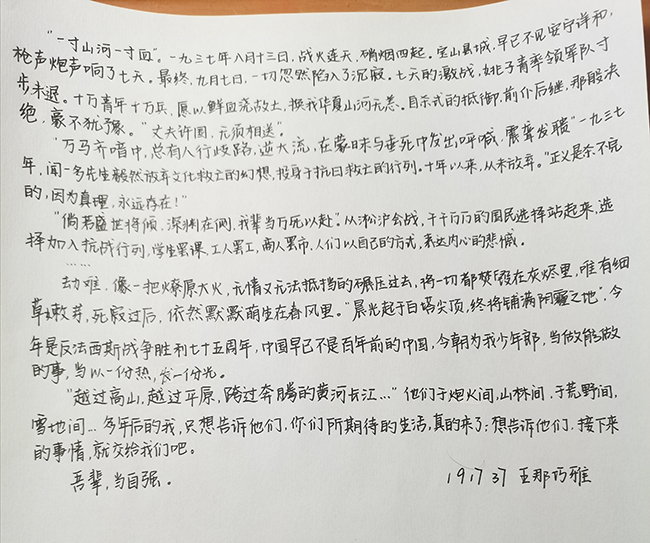 “一寸山河一寸血”。一九三七年八月十三日，战火连天，硝烟四起。宝山县城，早已不见安宁详和，
枪声炮声响了七天。最终，九月七日，一切忽然陷入了沉寂。七天的激战，姚子青率领军队寸
步未退。十万青年十万兵，愿以鲜血浇故土，换我华夏山河无恙。自杀式的抵御，前仆后继，那般决
绝，豪不犹豫。“丈夫许国，无须相送”。
“万马齐喑中，总有人行歧路，逆大流，在蒙昧与垂死中发出呼喊，震聋发聩”一九三七
年，闻一多先生毅然放弃文化救亡的幻想，投身于抗日救亡的行列。十年以来，从未放弃。“正义是杀不完
的，因为真理，永远存在！”
“倘若盛世将倾，深渊在侧，我辈当万死以赴”。从淞沪会战，千千万万的国民选择站起来，选
择加入抗战行列，学生罢课，工人罢工，商人罢市，人们以自己的方式，表达内心的悲憾。
……
劫难，像一把燎原大火，无情又无法抵挡的碾压过去，将一切都焚毁在灰烬里，唯有细
草嫩芽，死寂过后，依然默默萌生在春风里。“晨光起于白塔尖顶，终将铺满阴霾之地”，今
年是反法西斯战争胜利七十五周年，中国早已不是百年前的中国，今朝为我少年郎，当做能做
的事，当以一份热，发一份光。
“越过高山，越过平原，跨过奔腾的黄河长江…”他们于炮火间，山林间，于荒野间，
雪地间…多年后的我，只想告诉他们，你们所期待的生活，真的来了；想告诉他们，接下来
的事情，就交给我们吧。
吾辈，当自强。
191737 王那巧雅